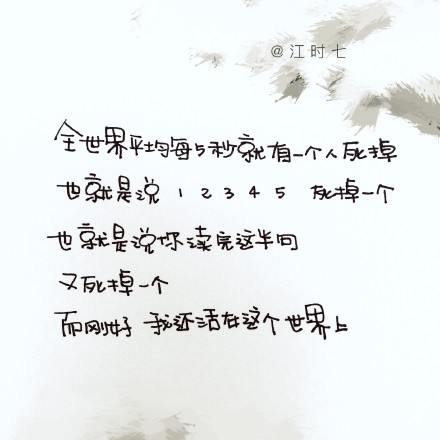 @江时七
全世界平均每5秒就有一个人死掉
也就是说 1 2 3 4 5 死掉一个
也就是说你读完这半句
又死掉一个
而刚好 我还活在这个世界上